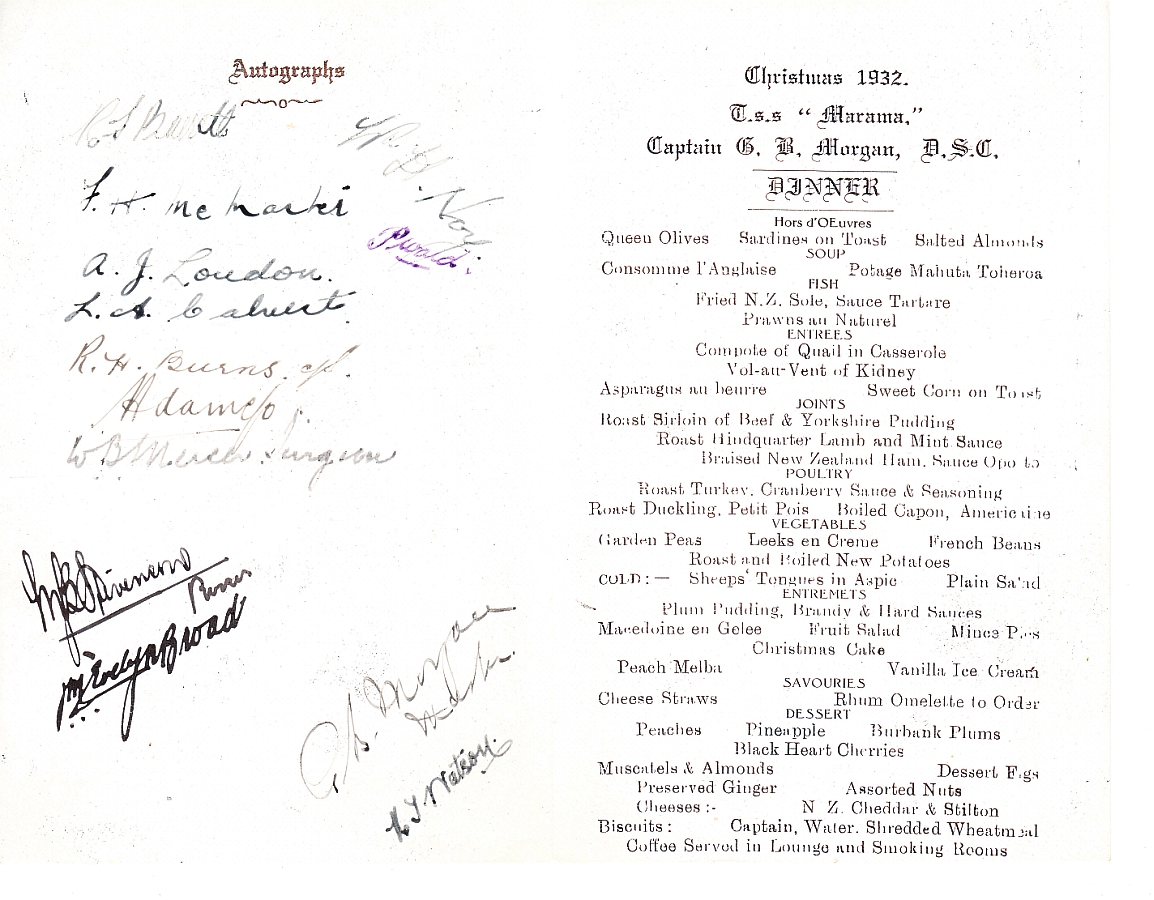 Autographs
A. J. Loudon.
L. A. Calvert.
R. H. Burns.
Surgeon
Purser
Evelyn Broad
Watson
Christmas 1932.
T.s.s "Marama,"
Captain G. B. Morgan, D.S.C.
DINNER
Hors d'OEuvres
Queen Olives Sardines on Toast Salted Almonds
SOUP
Consomme l'Anglaise Potage Mahuta Toheroa
FISH
Fried N.Z. Sole, Sauce Tartare
Prawns au Naturel
ENTREES
Compote of Quail in Casserole
Vol-au-Vent of Kidney
Asparagus au beurre Sweet Corn on Toast
JOINTS
Roast Sirloin of Beef & Yorkshire Pudding
Roast Hindquarter Lamb and Mint Sauce
Braised New Zealand Ham, Sauce
POULTRY
Roast Turkey, Cranberry Sauce & Seasoning
Roast Duckling, Petit Pois Boiled Capon, Americaine
VEGETABLES
Garden Peas Leeks en Creme French Beans
Roast and Boiled New Potatoes
COLD:— Sheeps' Tongues in Aspic Plain Salad
ENTREMETS
Plum Pudding, Brandy & Hard Sauces
Macedoine en Gelee Fruit Salad Mince Pies
Christmas Cake
Peach Melba Vanilla Ice Cream
SAVOURIES
Cheese Straws Rhum Omelette to Order
DESSERT
Peaches Pineapple Burbank Plums
Black Heart Cherries
Muscatels & Almonds Dessert Figs
Preserved Ginger Assorted Nuts
Cheeses :- N Z. Cheddar & Stilton
Biscuits : Captain, Water. Shredded Wheatmeal
Coffee Served in Lounge and Smoking Rooms